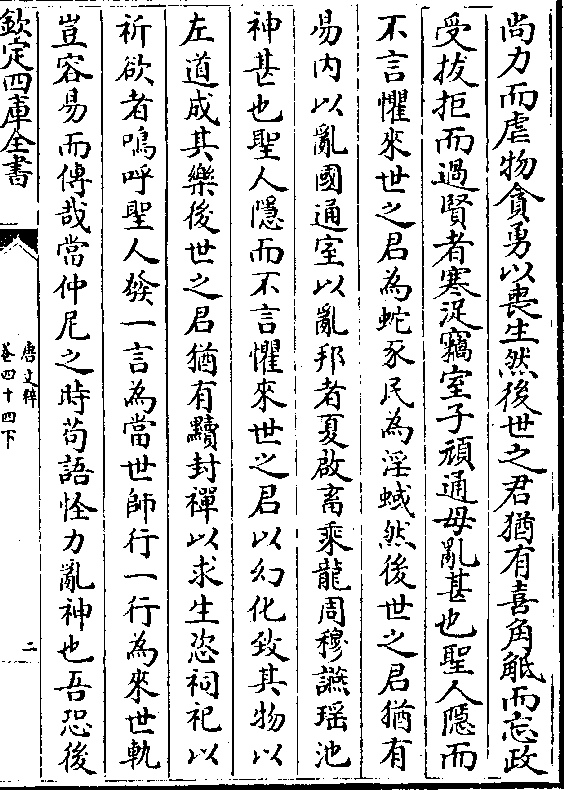 尚力而虐物貪勇以喪生然後世之君猶有喜角觝而忘政
受拔拒而過賢者寒浞竊室子頑通母亂甚也聖人隱而
不言懼來世之君為蛇豕民為淫蜮然後世之君猶有
易內以亂國通室以亂邦者夏啟畜乘龍周穆讌瑶池
神甚也聖人隱而不言懼來世之君以幻化致其物以
左道成其樂後世之君猶有黷封禪以求生恣祠祀以
祈欲者嗚呼聖人發一言為當世師行一行為來世軌
豈容易而傳哉當仲尼之時苟語怪力亂神也吾恐後
欽定四庫全書
唐文粹
卷四十四下
二